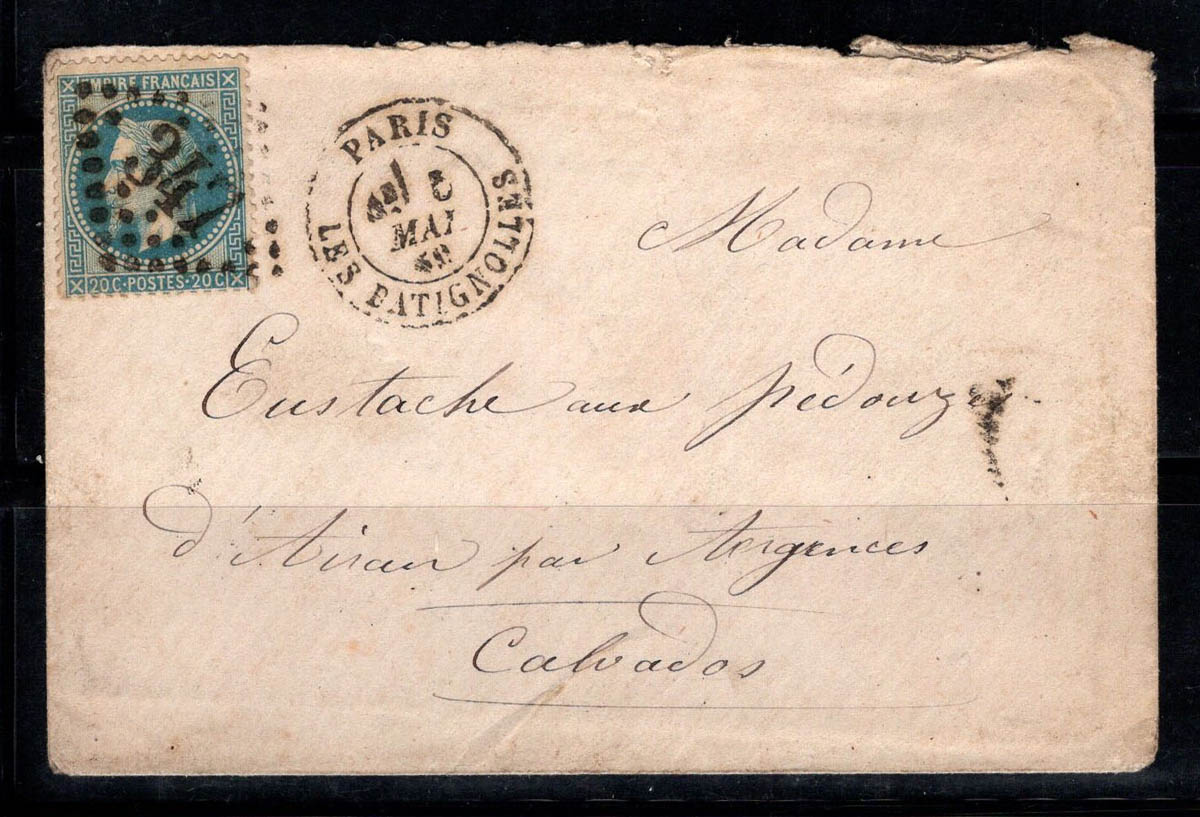 EMPIRE FRANÇAIS
20 C · POSTES · 20 C
PARIS
5
MAI
LES BATIGNOLLES
Madame
Eustache aux pédouze
d'Airan par Argences
Calvados